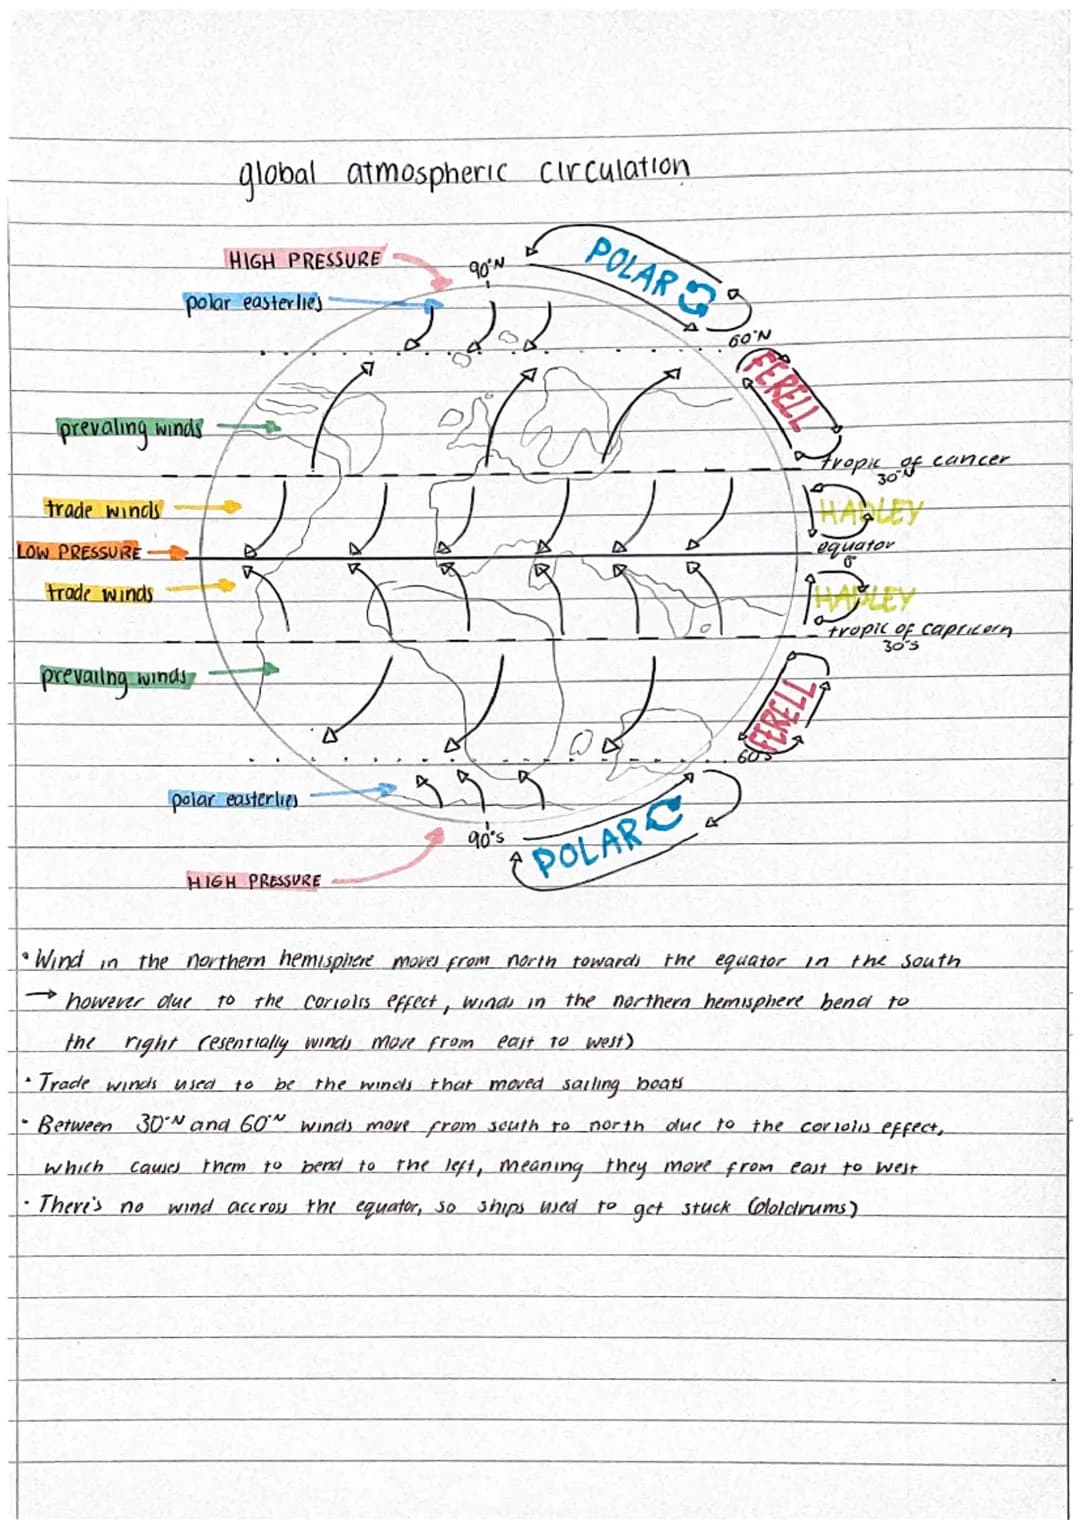 global atmospheric circulation
HIGH PRESSURE
90°N
POLAR
polar easterlies
60°N
FERELL
prevaling winds
tropic of cancer
30°N
trade winds
HADLEY
LOW PRESSURE
equator
0°
trade winds
HADLEY
tropic of capricorn
30°S
prevailng winds
FERELL
60°S
polar easterlies
90°S
POLAR
HIGH PRESSURE
• Wind in the northern hemisphere moves from north towards the equator in the south
→ however due to the coriolss effect, winds in the northern hemisphere bend to
the right (esentially winds move from east to west)
• Trade winds used to be the winds that moved sailing boats
• Between 30°N and 60°N winds move from south to north due to the coriolis effect,
which causes them to bend to the left, meaning they move from east to west
• There's no wind accross the equator, so ships used to get stuck (doldrums)